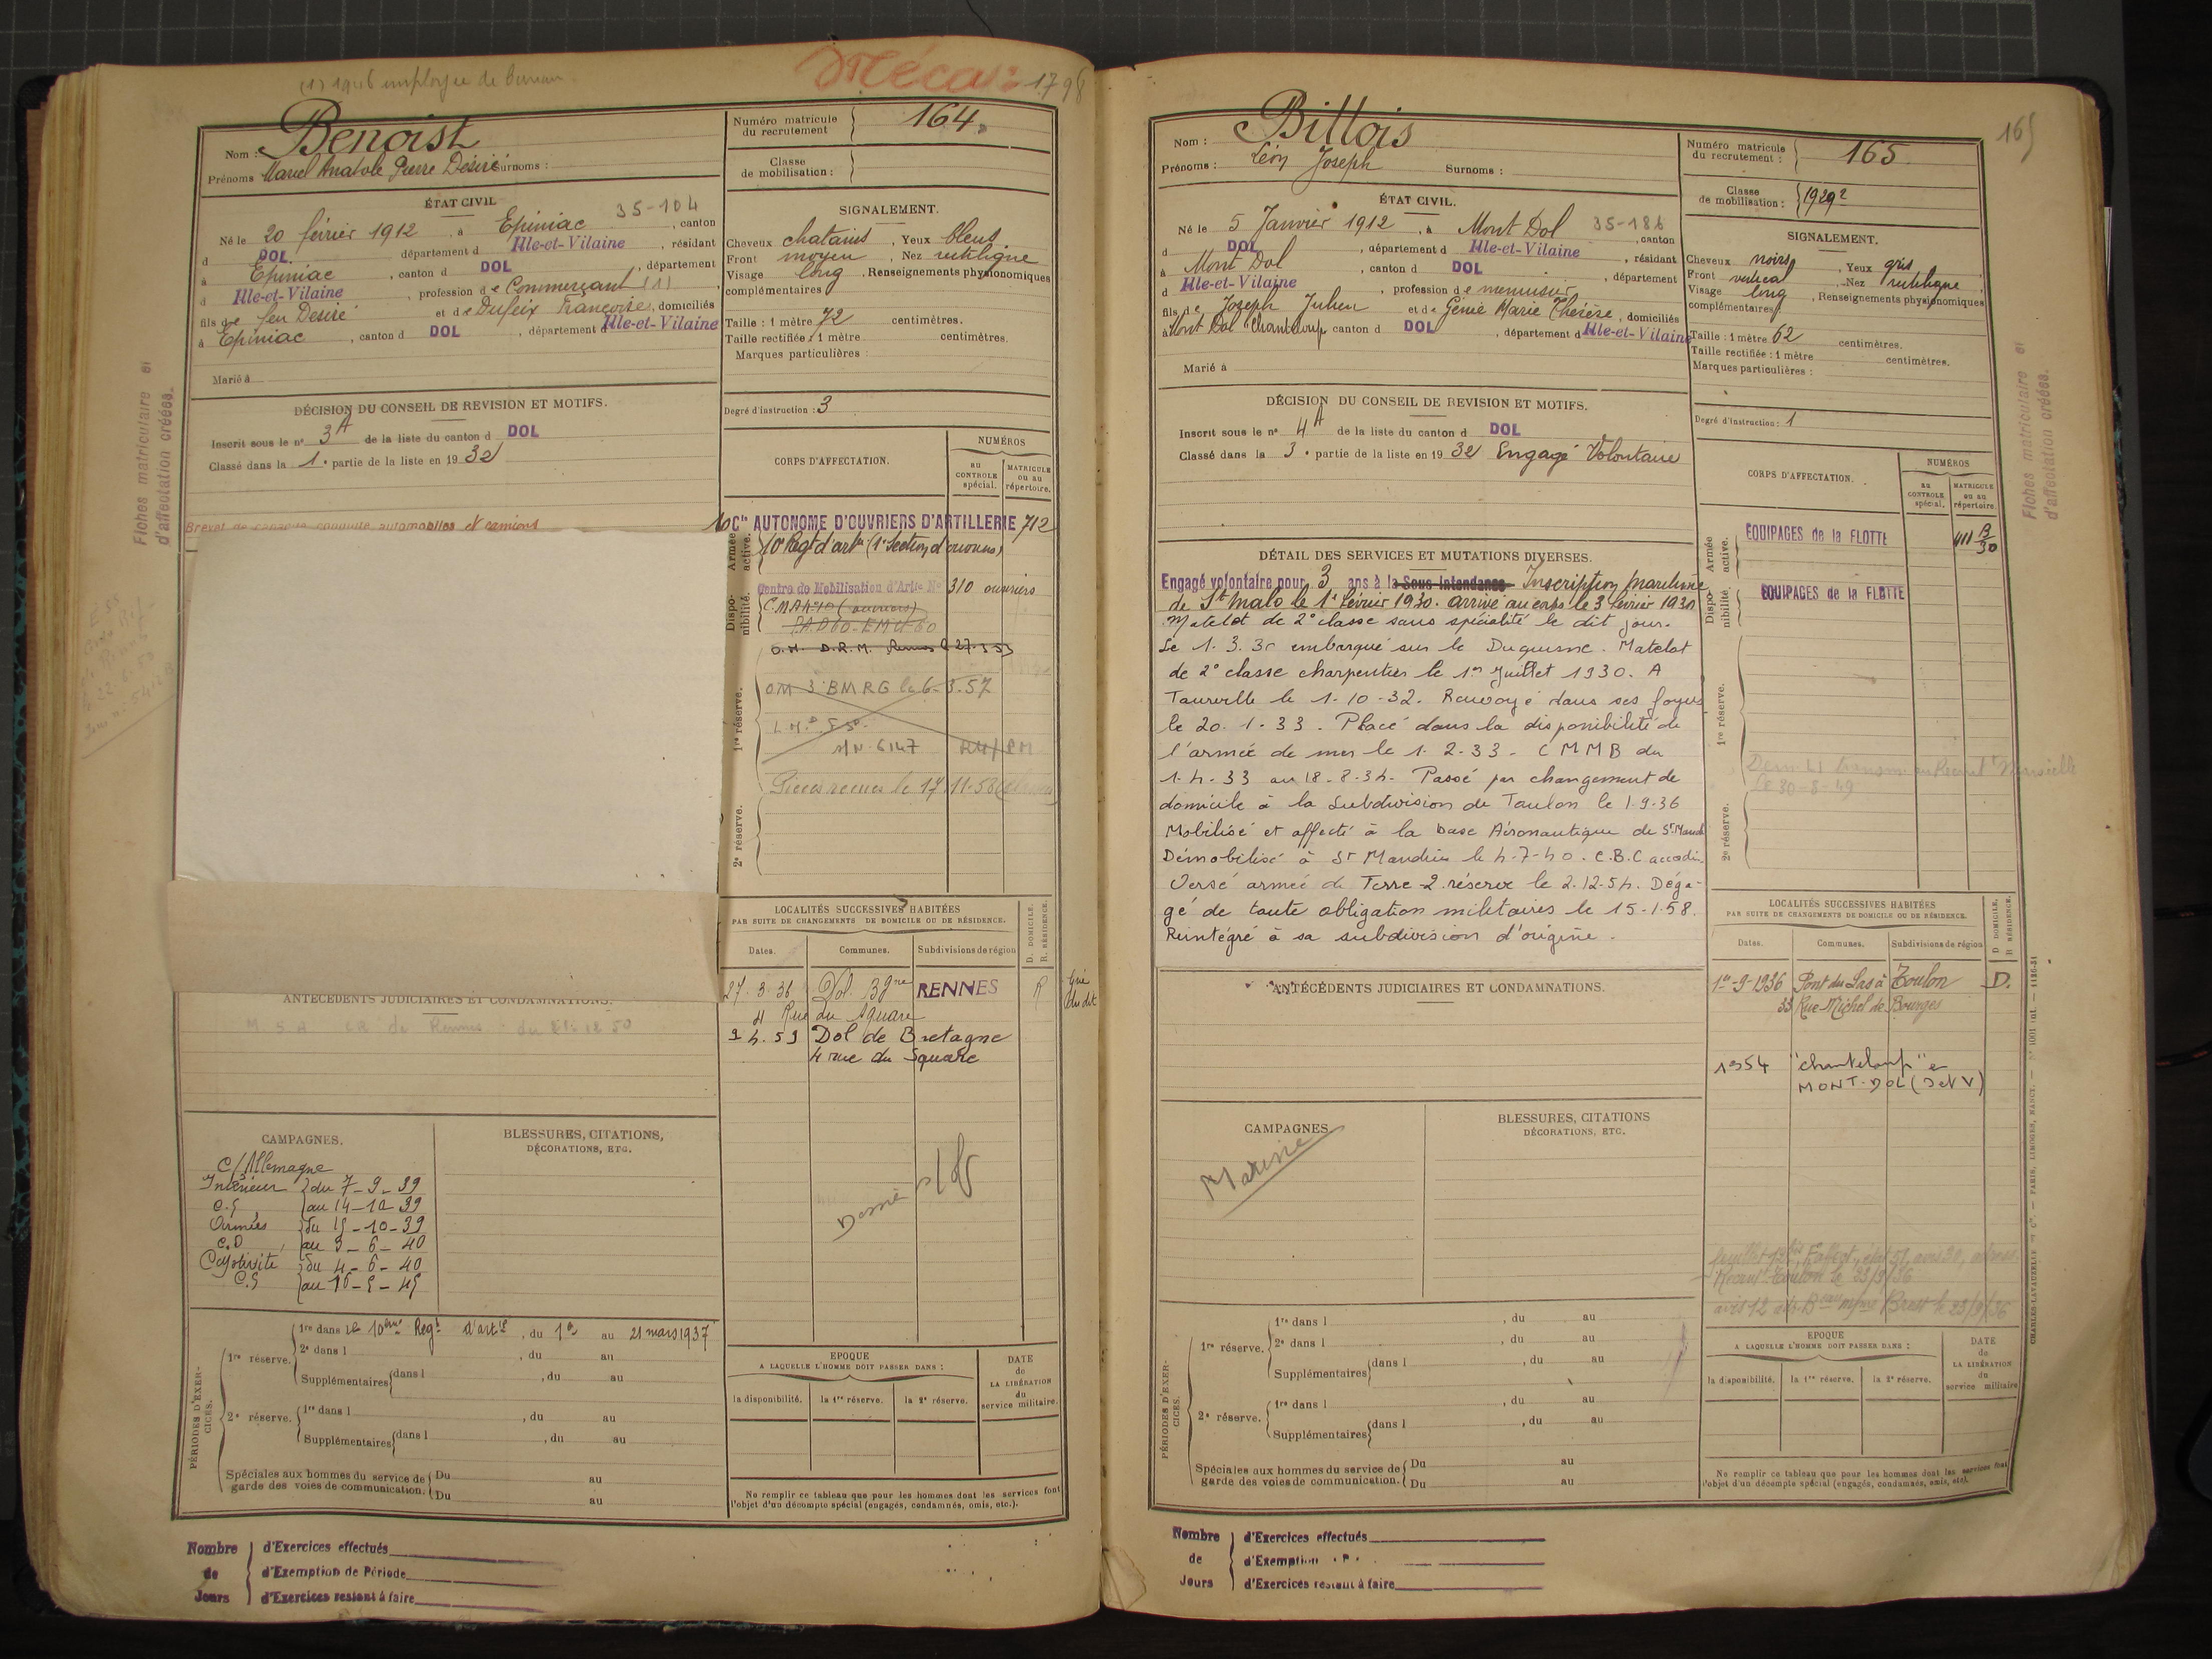 (1) 1946 employée de bureau
Méca
1798
Nom : Benoist
Prénoms Marcel Anatole Pierre Désiré Surnoms :
Numéro matricule du recrutement 164
Classe de mobilisation :
ÉTAT CIVIL
35-104
Né le 20 février 1912, à Epiniac, canton
d DOL département d Ille-et-Vilaine, résidant
à Epiniac, canton d DOL, département
d Ille-et-Vilaine, profession de Commerçant (1)
fils de feu Désiré et de Dufeix Françoise, domiciliés
à Epiniac, canton d DOL, département d Ille-et-Vilaine
Marié à
SIGNALEMENT.
Cheveux chatains, Yeux bleus
Front moyen, Nez rectiligne
Visage long, Renseignements physionomiques
complémentaires
Taille : 1 mètre 72 centimètres.
Taille rectifiée : 1 mètre centimètres.
Marques particulières :
Degré d'instruction : 3
DÉCISION DU CONSEIL DE REVISION ET MOTIFS.
Inscrit sous le n° 3A de la liste du canton d DOL
Classé dans la 1. partie de la liste en 1932
Fiches matriculaire et
d'affectation créées.
Brevet de conduite automobiles et camions
CORPS D'AFFECTATION.
NUMÉROS
au CONTROLE spécial.
MATRICULE ou au répertoire.
Armée active.
10 Cie AUTONOME D'OUVRIERS D'ARTILLERIE 712
10e Regt d'artie (1e Section d'ouvriers)
Disponibilité.
Centre de Mobilisation d'Artie No 310 ouvriers
C.M.A. n°10 (ouvriers)
O.M. D.R.M. Rennes le 27.3.53
1re réserve.
OM 3 BMRG le 6-3.57
S/N 6147
Pièces reçues le 17.11.58
2e réserve.
LOCALITÉS SUCCESSIVES HABITÉES
PAR SUITE DE CHANGEMENTS DE DOMICILE OU DE RÉSIDENCE.
D. DOMICILE.
R. RÉSIDENCE.
Dates.
Communes.
Subdivisions de région
27.3.36 Dol Bgne RENNES R
4 Rue du Square
2.4.53 Dol de Bretagne
4 rue du Square
ANTÉCÉDENTS JUDICIAIRES ET CONDAMNATIONS.
CAMPAGNES.
C/ Allemagne
Intérieur du 7-9-39
C.S au 14-10-39
Armées du 15-10-39
C.D au 3-6-40
Captivité du 4-6-40
C.S au 16-5-45
BLESSURES, CITATIONS,
DÉCORATIONS, ETC.
PÉRIODES D'EXERCICES.
1re réserve.
1re dans le 10ème Regt d'artie, du 1er au 21 mars 1937
2e dans l , du au
Supplémentaires dans l , du au
2e réserve.
1re dans l , du au
Supplémentaires dans l , du au
Spéciales aux hommes du service de
garde des voies de communication.
Du au
Du au
EPOQUE
A LAQUELLE L'HOMME DOIT PASSER DANS :
la disponibilité.
la 1re réserve.
la 2e réserve.
DATE de LA LIBÉRATION du service militaire.
Ne remplir ce tableau que pour les hommes dont les services font
l'objet d'un décompte spécial (engagés, condamnés, omis, etc.).
Nombre de Jours
d'Exercices effectués
d'Exemption de Période
d'Exercices restant à faire
165
Nom : Billois
Prénoms : Léon Joseph Surnoms :
Numéro matricule du recrutement : 165
Classe de mobilisation : 1929 2
ÉTAT CIVIL.
Né le 5 Janvier 1912, à Mont Dol 35-186, canton
d DOL, département d Ille-et-Vilaine, résidant
à Mont Dol, canton d DOL, département
d Ille-et-Vilaine, profession de menuisier
fils de Joseph Julien et de Génie Marie Thérèse, domiciliés
à Mont Dol "Chanteloup" canton d DOL, département d Ille-et-Vilaine
Marié à
SIGNALEMENT.
Cheveux noirs, Yeux gris
Front vertical, Nez rectiligne
Visage long, Renseignements physionomiques
complémentaires
Taille : 1 mètre 62 centimètres.
Taille rectifiée : 1 mètre centimètres.
Marques particulières :
Degré d'instruction : 1
DÉCISION DU CONSEIL DE REVISION ET MOTIFS.
Inscrit sous le n° 4A de la liste du canton d DOL
Classé dans la 3. partie de la liste en 1932 Engagé Volontaire
DÉTAIL DES SERVICES ET MUTATIONS DIVERSES.
Engagé volontaire pour 3 ans à la Sous Intendance Inscription maritime
de St Malo le 1er février 1930. arrivé au corps le 3 février 1930
Matelot de 2e classe sans spécialité le dit jour.
Le 1.3.30 embarqué sur le Duquesne. Matelot
de 2e classe charpentier le 1er Juillet 1930. A
Tourville le 1-10-32. Renvoyé dans ses foyers
le 20.1.33. Placé dans la disponibilité de
l'armée de mer le 1.2.33. CMMB du
1.4.33 au 18.8.34. Passé par changement de
domicile à la subdivision de Toulon le 1-9-36
Mobilisé et affecté à la base Aéronautique de St Mand
Démobilisé à St Mandrier le 4-7-40. C.B.C. accordé.
Versé armée de Terre 2. réserve le 2.12.54. Déga-
gé de toute obligation militaires le 15.1.58.
Réintégré à sa subdivision d'origine.
CORPS D'AFFECTATION.
NUMÉROS
au CONTROLE spécial.
MATRICULE ou au répertoire.
Armée active.
ÉQUIPAGES de la FLOTTE
Disponibilité.
ÉQUIPAGES de la FLOTTE
1re réserve.
le 30-8-49
2e réserve.
Fiches matriculaire et
d'affectation créées.
LOCALITÉS SUCCESSIVES HABITÉES
PAR SUITE DE CHANGEMENTS DE DOMICILE OU DE RÉSIDENCE.
D DOMICILE.
R RÉSIDENCE.
Dates.
Communes.
Subdivisions de région
1er-9-1936 Pont du Las à Toulon D.
33 Rue Michel de Bourges
1954 "chanteloup" en
MONT-DOL (I et V)
ANTÉCÉDENTS JUDICIAIRES ET CONDAMNATIONS.
CAMPAGNES
Marine
BLESSURES, CITATIONS
DÉCORATIONS, ETC.
Recrut Toulon le 23/9/36
Brest le 23/9/36
PÉRIODES D'EXERCICES.
1re réserve.
1re dans l , du au
2e dans l , du au
Supplémentaires dans l , du au
2e réserve.
1re dans l , du au
Supplémentaires dans l , du au
Spéciales aux hommes du service de
garde des voies de communication.
Du au
Du au
EPOQUE
A LAQUELLE L'HOMME DOIT PASSER DANS :
la disponibilité.
la 1re réserve.
la 2e réserve.
DATE de LA LIBÉRATION du service militaire
Ne remplir ce tableau que pour les hommes dont les services font
l'objet d'un décompte spécial (engagés, condamnés, omis, etc).
CHARLES-LAVAUZELLE & Cie. — PARIS, LIMOGES, NANCY.
Nombre de Jours
d'Exercices effectués
d'Exemption
d'Exercices restant à faire